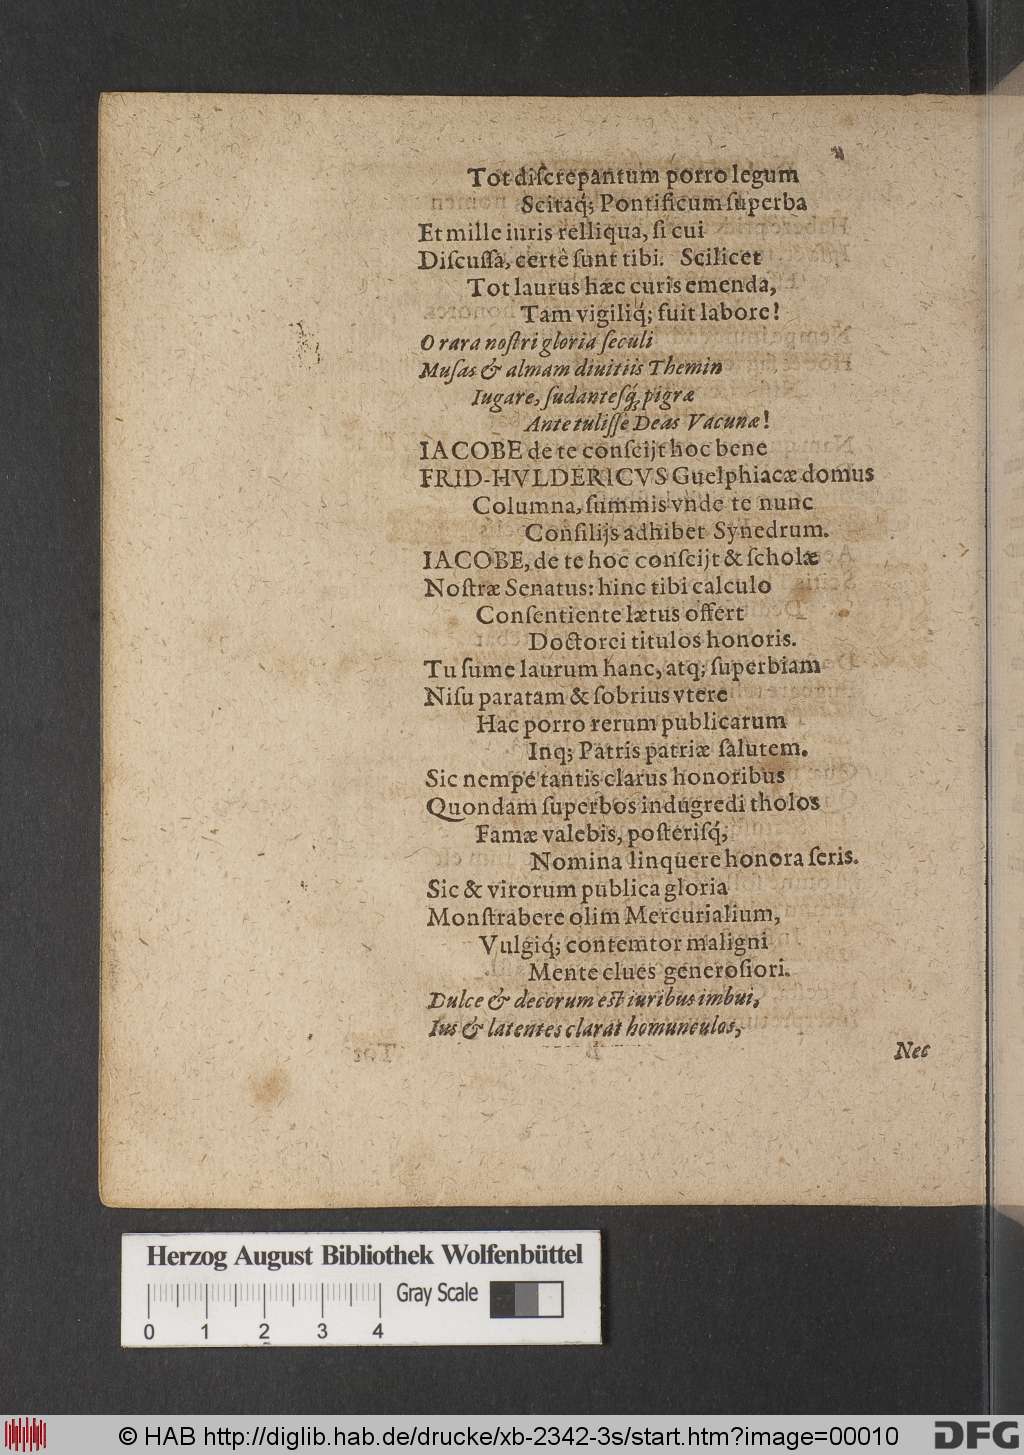 Tot diſcrepantum porro legum
Scitaq́; Pontificum ſuperba
Et mille iuris relliqua, ſi cui
Diſcuſſa, certê ſunt tibi. Scilicet
Tot laurus hæc curis emenda,
Tam vigiliq́; fuit labore!
O rara noſtri gloria ſeculi
Muſas & almam diuitiis Themin
Iugare, ſudanteſq́; pigræ
Ante tuliſſe Deas Vacunæ!
IACOBE de te conſcijt hoc bene
FRID-HVLDERICVS Guelphiacæ domus
Columna, ſummis vnde te nunc
Conſilijs adhibet Synedrum.
IACOBE, de te hoc conſcijt & ſcholæ
Noſtræ Senatus: hinc tibi calculo
Conſentiente lætus offert
Doctorei titulos honoris.
Tu ſume laurum hanc, atq; ſuperbiam
Niſu paratam & ſobrius vtere
Hac porro rerum publicarum
Inq; Patris patriæ ſalutem.
Sic nempé tantis clarus honoribus
Quondam ſuperbos indugredi tholos
Famæ valebis, poſteriſq́;
Nomina linquere honora ſeris.
Sic & virorum publica gloria
Monſtrabere olim Mercurialium,
Vulgiq́; contemtor maligni
Mente clues generoſiori.
Dulce & decorum eſt iuribus imbui,
Ius & latentes clarat homunculos,
Nec
Herzog August Bibliothek Wolfenbüttel
Gray Scale
0 1 2 3 4
© HAB http://diglib.hab.de/drucke/xb-2342-3s/start.htm?image=00010
DFG